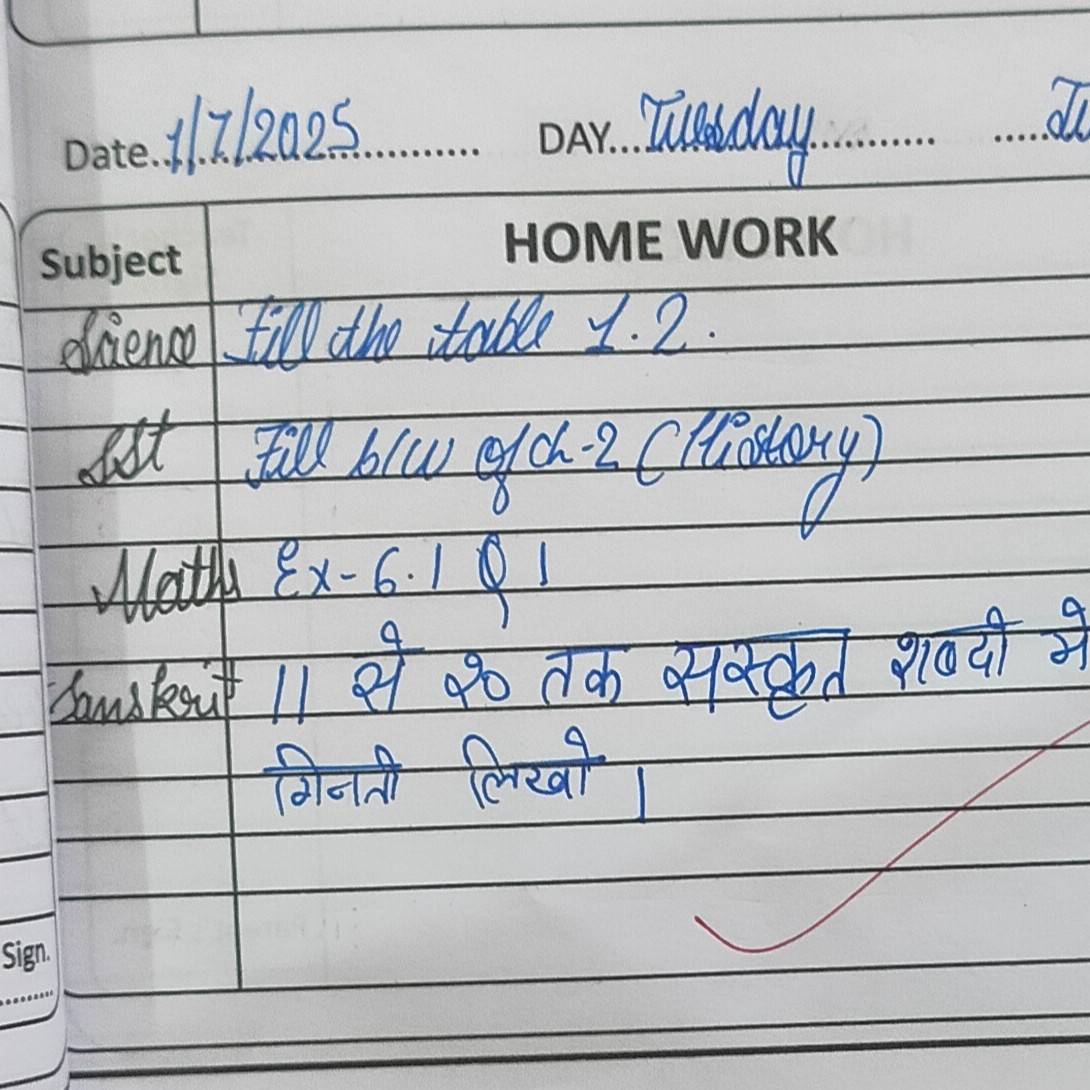 Date. 1/7/2025 DAY... Tuesday
Subject HOME WORK
Science Fill the table 1.2.
SSt Fill b/w of ch-2 (History)
Maths Ex-6.1 Q 1
Sanskrit 11 से २० तक सस्कृत शब्दो मे
गिनती लिखो |
Sign.